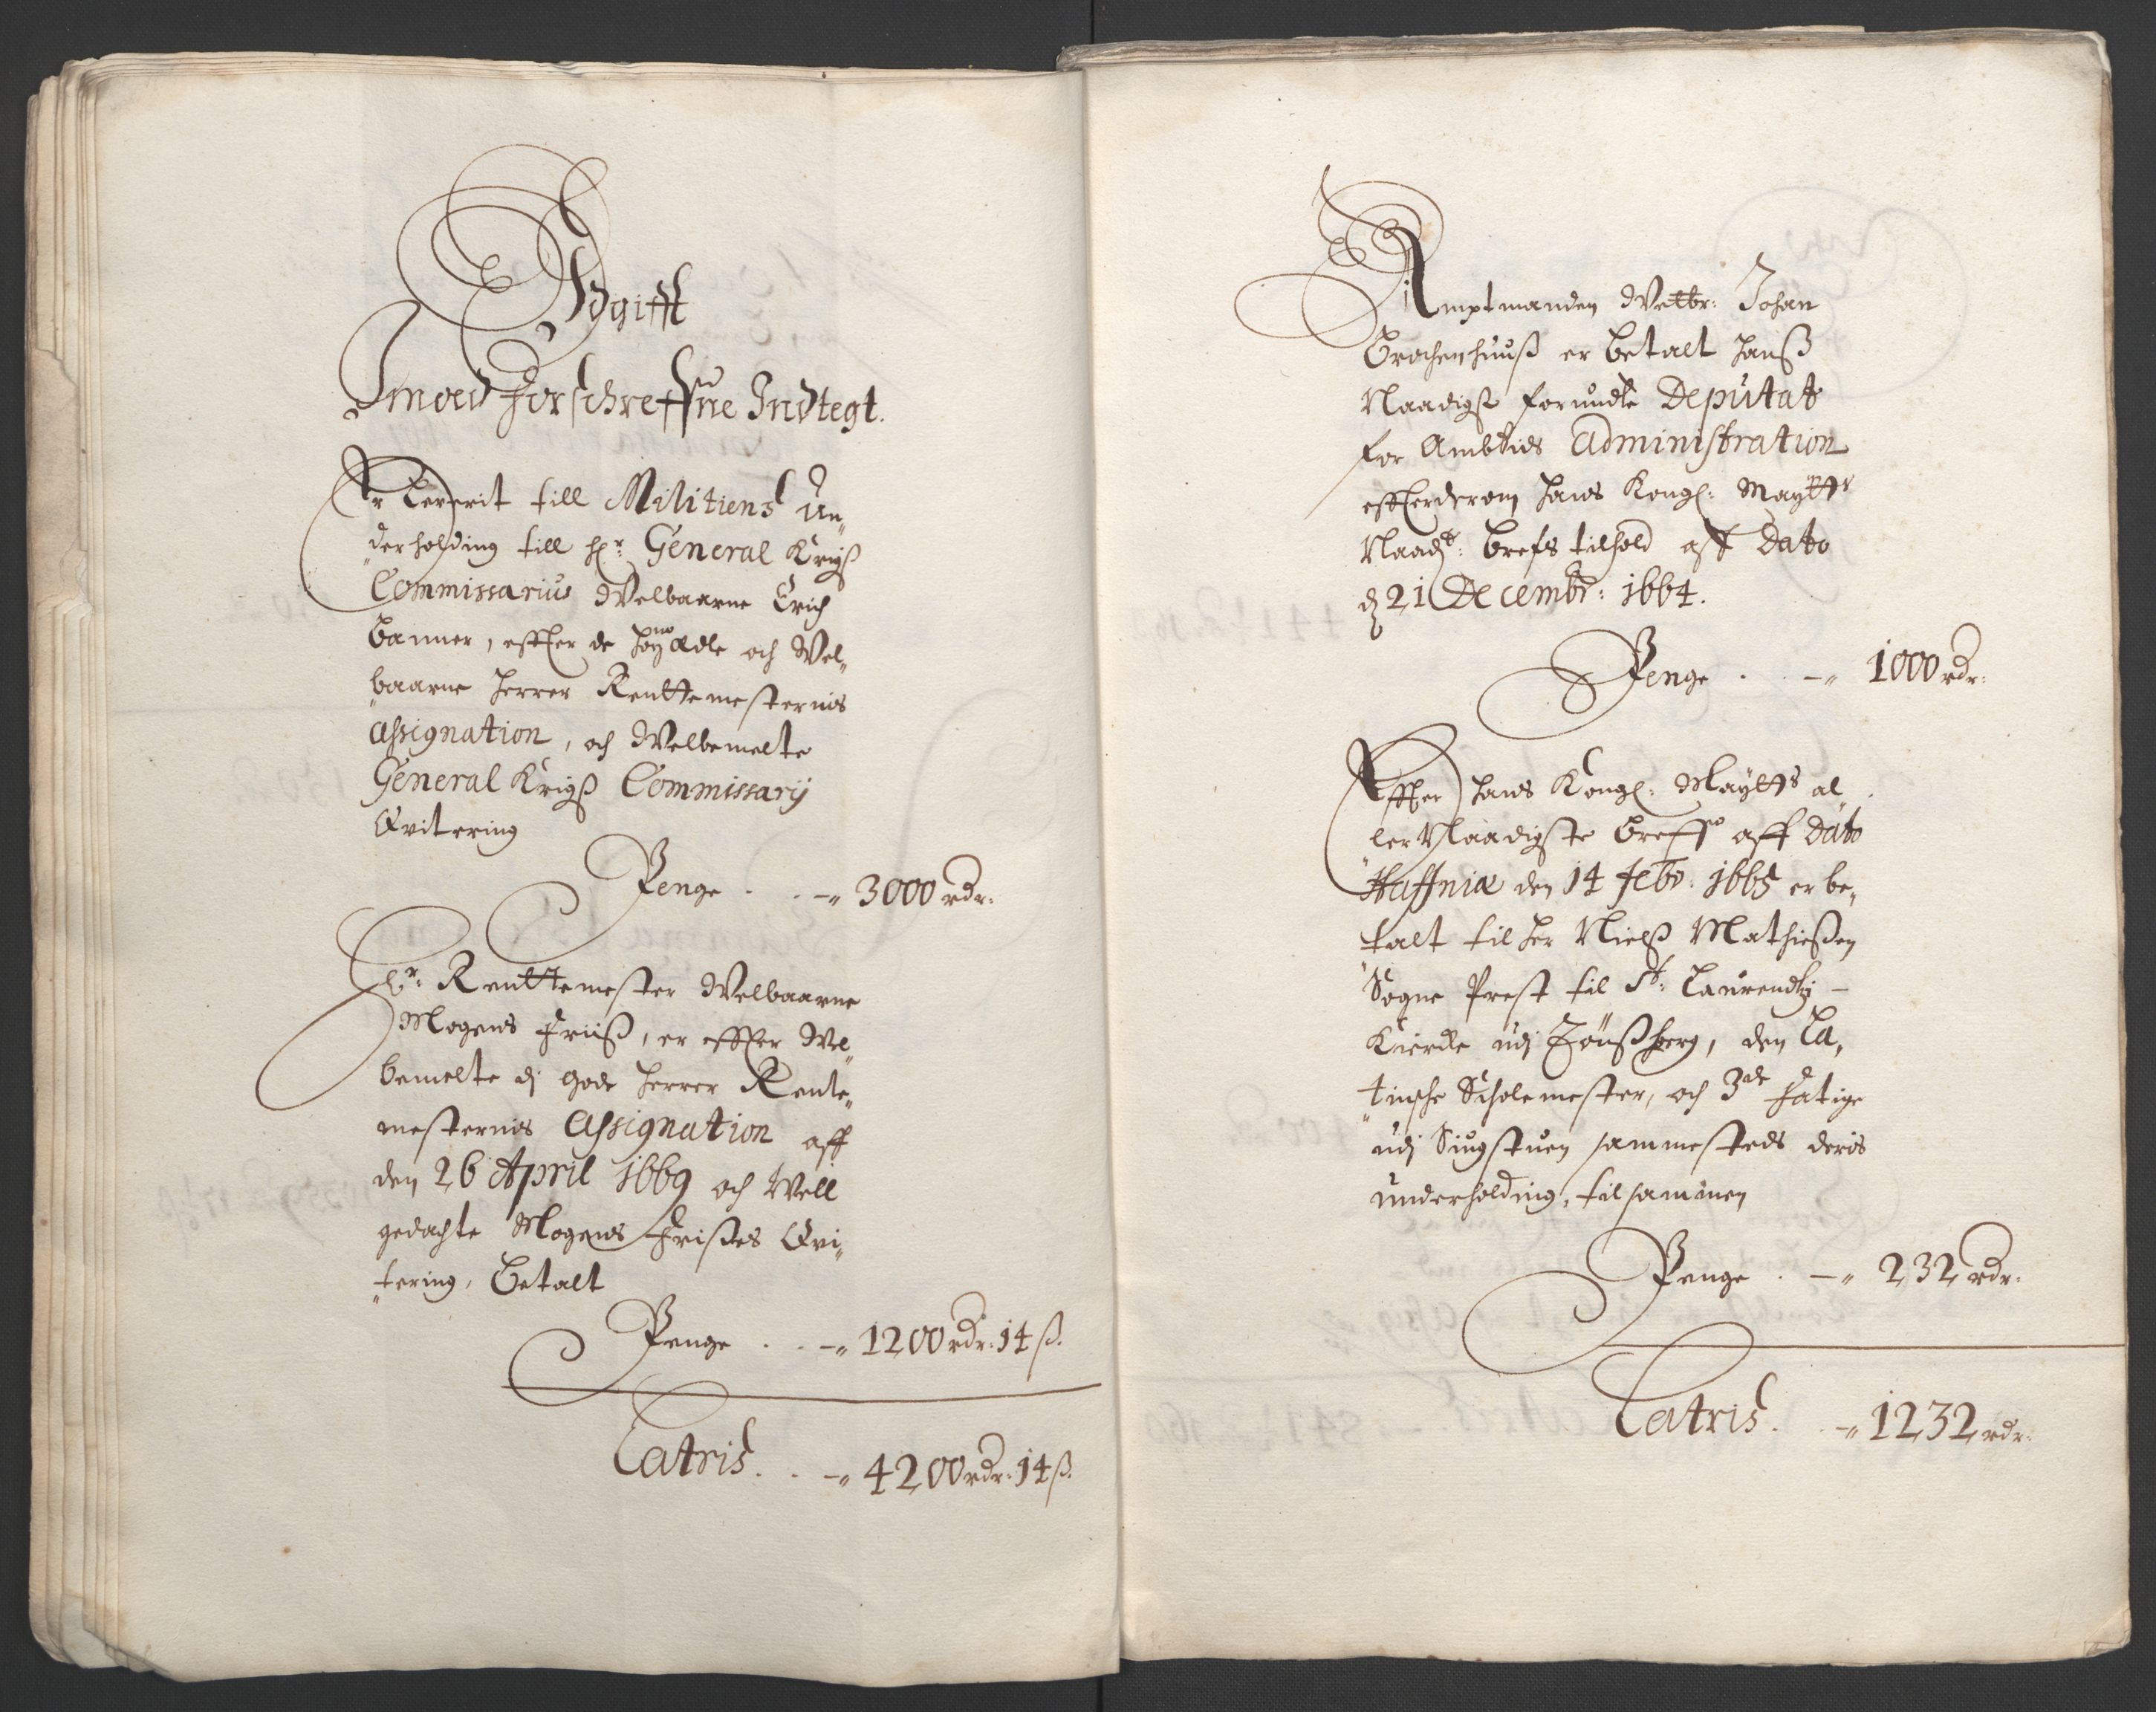 Udgifft
Imoed forschreffne Indtegt.
Er Leverit till Militiens Un„
„derholding till hr: General Krigs
Commissarius Welbaarne Erich
Banner, effter de høyædle och Wel„
„baarne herrer Renttemesternis
Assignation, och Welbemelte
General Krigs Commissarij
Qvitering
Penge . . –„ 3000 rdr:
Hr: Renttemester Welbaarne
Mogens Friiß, er effter Wel„
bemelte di gode herrer Rente„
mesternis Assignation aff
den 26 April 1669 och Well
gedachte Mogens Frißes Qvi„
„tering, betalt
Penge . . –„ 1200 rdr: 14 ß.
Latris . . –„ 4200 rdr: 14 ß.
Amptmanden Welbr: Johan
Brochenhuuß er betalt hanß
Naadigst forundte Deputat
for Ambtids Administration
effterderom hans Kongl: Maytts
Naadst: brefs tilhold aff Dato
d 21 Decembr: 1664.
Penge . . –„ 1000 rdr:
Effter hans Kongl: Maytts al„
„ler Naadigste breff aff Dato
Haffniæ den 14 Febr: 1665 er be„
talt til her Nielß Mathießen
Sogne Prest til St: Laurendtzij –
Kiercke udj Tønßberg, den La„
„tinsche Scholemester, och 3de Fatige
udj Siugstuen sammesteds deris
underholding, tilsammen
Penge . –„ 232 rdr:
Latris . . –„ 1232 rdr: